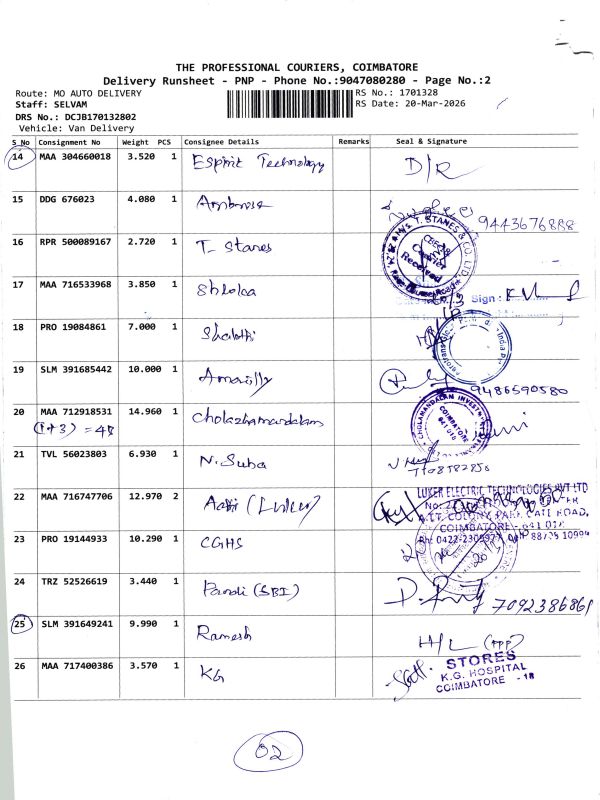 THE PROFESSIONAL COURIERS, COIMBATORE
Delivery Runsheet - PNP - Phone No.:9047080280 - Page No.:2
Route: MO AUTO DELIVERY RS No.: 1701328
Staff: SELVAM RS Date: 20-Mar-2026
DRS No.: DCJB170132802
Vehicle: Van Delivery
S No Consignment No Weight PCS Consignee Details Remarks Seal & Signature
14 MAA 304660018 3.520 1 Esprit Technology D/R
15 DDG 676023 4.080 1 Ambrose 9443676888
16 RPR 500089167 2.720 1 T. Stanes T. STANES & CO. LTD Courier Received
17 MAA 716533968 3.850 1 Shloka Sign:
18 PRO 19084861 7.000 1 Shakthi
19 SLM 391685442 10.000 1 Amarilly 9486590580
20 MAA 712918531 14.960 1 Cholazhamandalam CHOLAMANDALAM INVESTMENT COIMBATORE
(1+3) = 48
21 TVL 56023803 6.930 1 N. Suba
22 MAA 716747706 12.970 2 (Luker) LUKER ELECTRIC TECHNOLOGIES PVT LTD
A.T.T. COLONY, PARK GATE ROAD,
COIMBATORE - 641 018
23 PRO 19144933 10.290 1 CGHS
24 TRZ 52526619 3.440 1 Pandi (SBI) 7092386861
25 SLM 391649241 9.990 1 Ramesh H/L
26 MAA 717400386 3.570 1 KG STORES
K.G. HOSPITAL
COIMBATORE - 18
02